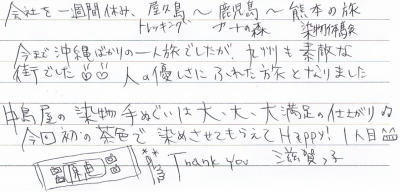 会社を一週間休み、屋久島〜鹿児島〜熊本の旅
トレッキング アートの森 染物体験
今まで沖縄ばかりの一人旅でしたが、九州も素敵な
街でした 人の優しさにふれた旅となりました
中島屋の染物手ぬぐいは大、大、大満足の仕上がり
今回初の茶色で染めさせてもらえてHappy! 1人目
Thank you 滋賀っ子